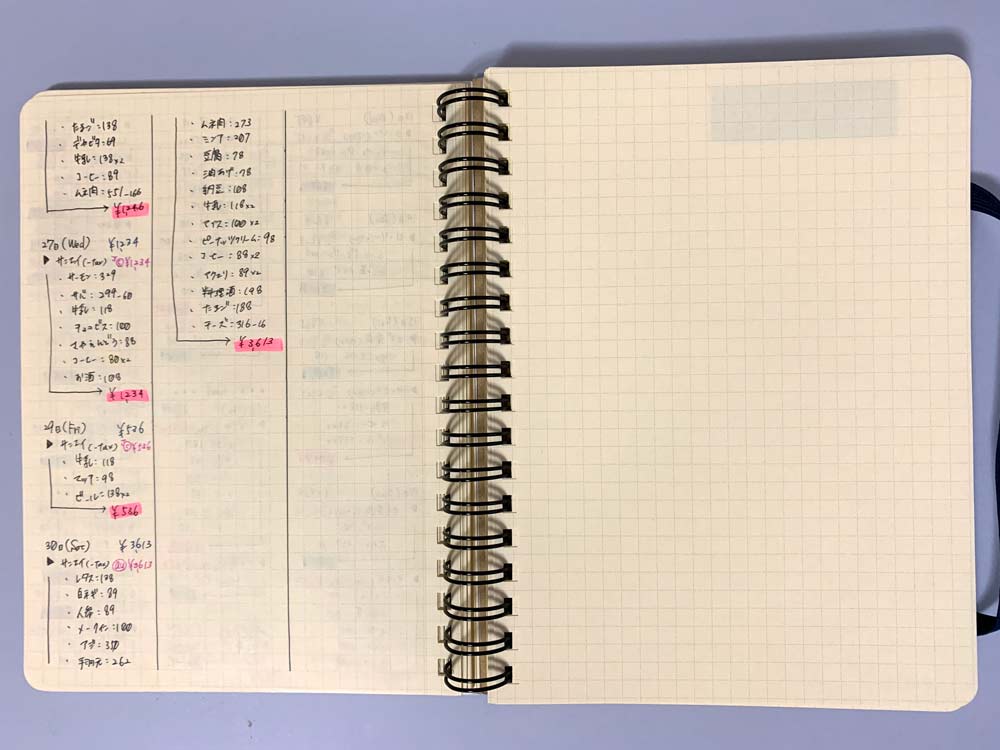 ・たまご：138
・ギョビタ：69
・牛乳：138×2
・コーヒー：89
・ムネ肉：551-166
¥1,246
27日(Wed) ¥1,234
▶サンエイ(-tax) ¥1,234
・サーモン：329
・サバ：299-60
・牛乳：118
・チョコビス：100
・スナップえんどう：88
・コーヒー：80×2
・お酒：108
¥1,234
29日(Fri) ¥536
▶サンエイ(-tax) ¥536
・牛乳：118
・マッチ：98
・ビール：138×2
¥536
30日(Sat) ¥3,613
▶サンエイ(-tax) ¥3,613
・レタス：128
・白ネギ：89
・人参：89
・メークイン：100
・アジ：350
・手羽元：262
・ムネ肉：273
・ミンチ：207
・豆腐：78
・油あげ：78
・納豆：108
・牛乳：118×2
・アイス：100×2
・ピーナッツクリーム：98
・コーヒー：88×2
・アクエリ：89×2
・料理酒：198
・たまご：188
・チーズ：316-16
¥3,613